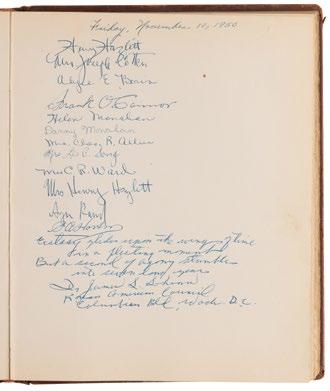 Friday, November 10, 1950
Henry Hazlett
Mrs Joseph Cotten
Algie E.
Frank O'Connor
Helen Monahan
Danny Monahan
Mrs. Chas. R. Allen
Mrs. C. Song
Mrs C. R. Ward
Mrs Henry Hazlett
Ayn Rand
Ecstasy glides upon the wings of time
For a fleeting moment
But a second of agony stumbles
into seven long years
Dr James S. Shinn
Korean American Council
Columbian Bld, Wash. D.C.